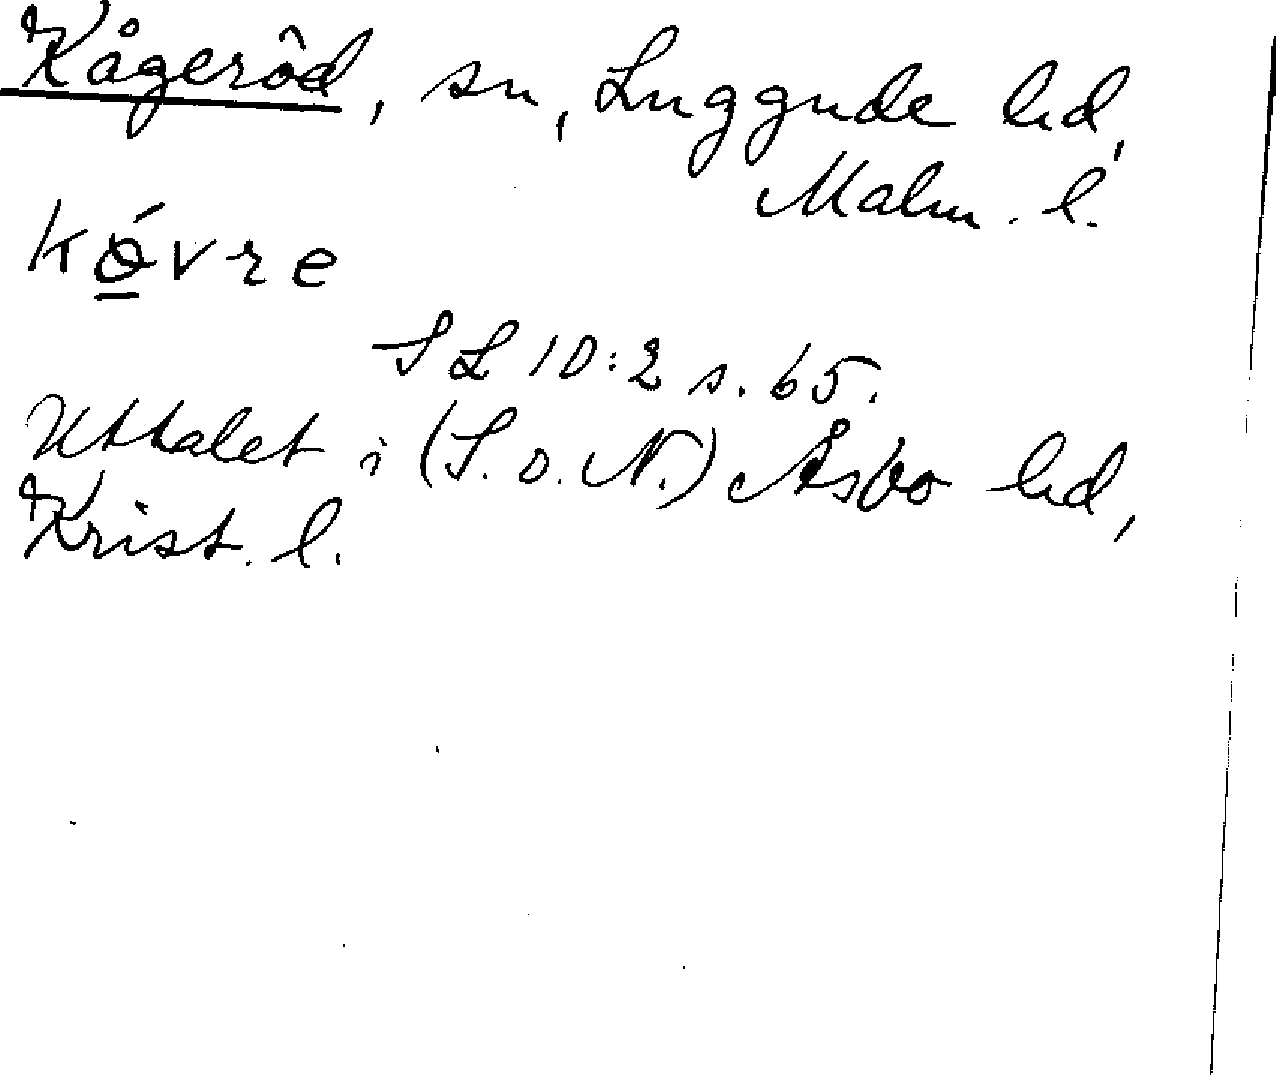 Kågeröd, sn, Luggude hd,
Malm. l.
kǿvre
SL 10:2 s. 65.
Uttalet i (S. o. N.) Åsbo hd,
Krist. l.